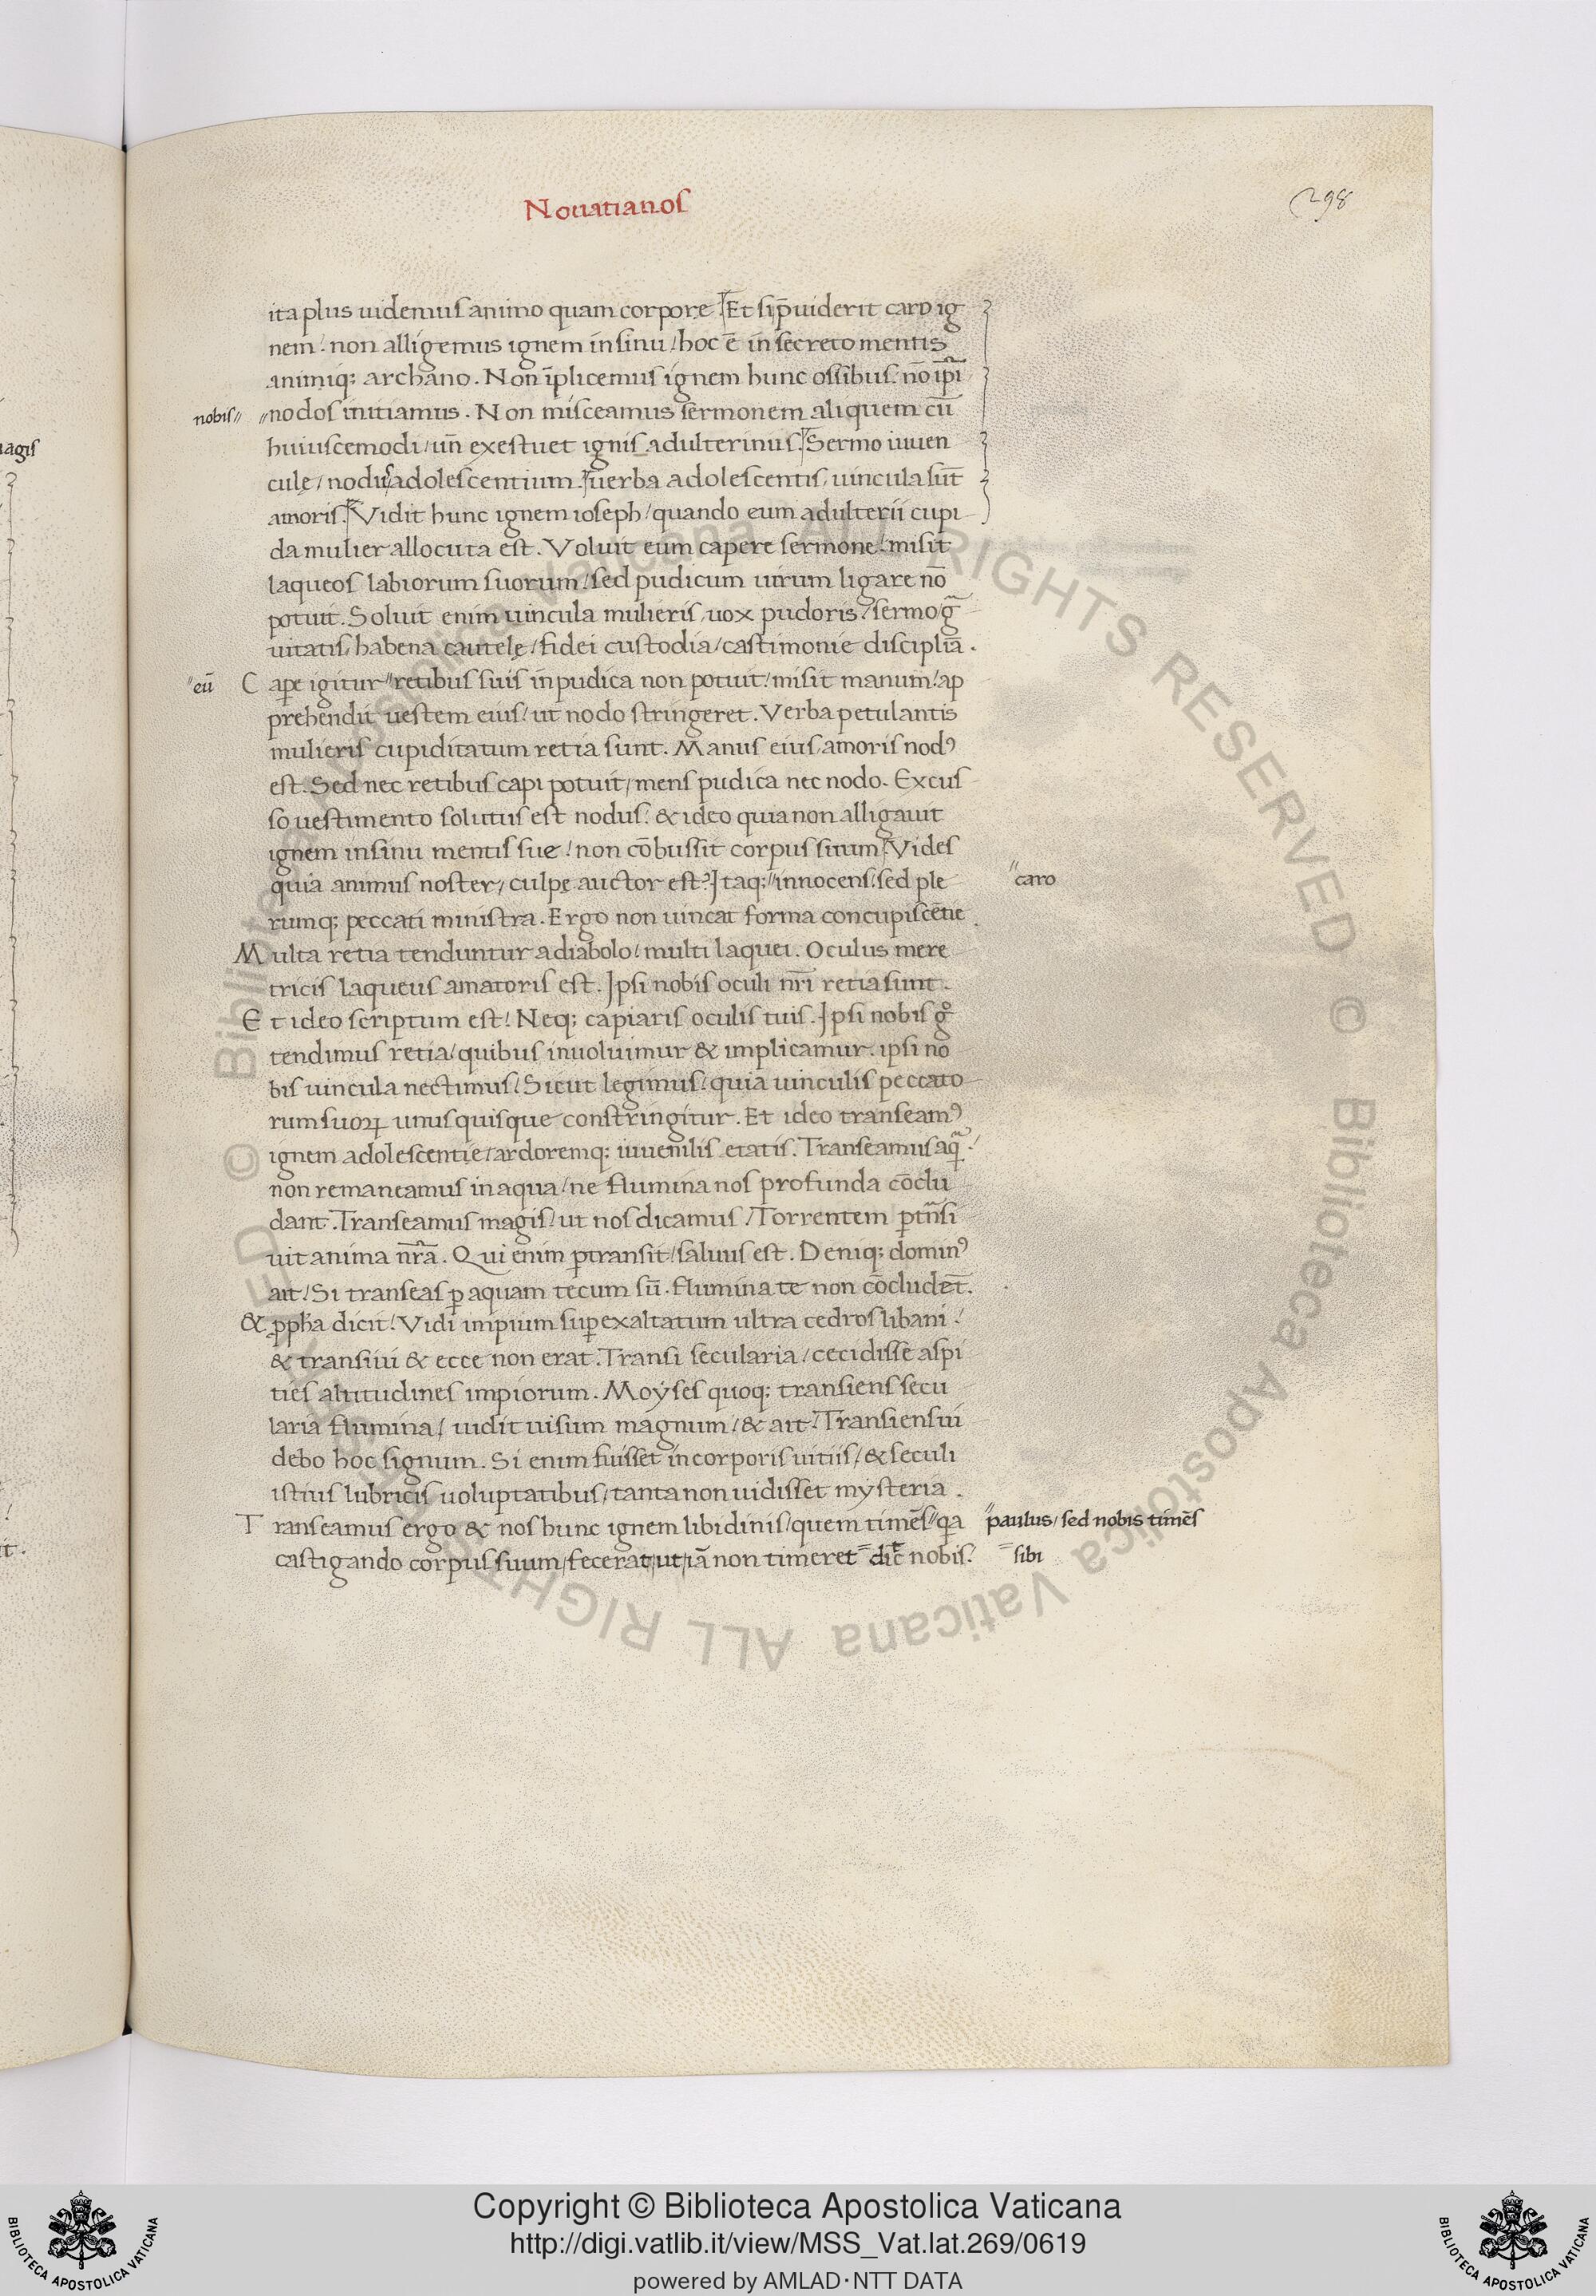 Nouatianos
298
ita plus uidemus animo quam corpore. Et si p̄uiderit caro ig
nem: non alligemus ignem in sinu/ hoc ē in secreto mentis
animiq; archano. Non īplicemus ignem hunc ossibus. nō ip̄i
nobis// //nodos initiamus. Non misceamus sermonem aliquem cū
huiuscemodi/ uñ exestuet ignis adulterinus. Sermo iuuen
culę/ nodus adolescentium. uerba adolescentis, uincula sūt
amoris. Vidit hunc ignem ioseph/ quando eum adulterii cupi
da mulier allocuta est. Voluit eum capere sermone: misit
laqueos labiorum suorum/ sed pudicum uirum ligare nō
potuit. Soluit enim uincula mulieris, uox pudoris/ sermo g̃
uitatis, habena cautelę/ fidei custodia/ castimonie disciplīa.
//eū Cape igitur//retibus suis inpudica non potuit/ misit manum/ ap
prehendit uestem eius/ ut nodo stringeret. Verba petulantis
mulieris cupiditatum retia sunt. Manus eius, amoris nodꝰ
est. Sed nec retibus capi potuit/ mens pudica nec nodo. Excus
so uestimento solutus est nodus: & ideo quia non alligauit
ignem in sinu mentis sue/ non cōbussit corpus suum. Vides
quia animus noster, culpę auctor est? Itaq; //innocens/ sed ple //caro
rumq; peccati ministra. Ergo non uincat forma concupiscētie.
Multa retia tenduntur a diabolo/ multi laquei. Oculus mere
tricis laqueus amatoris est. Ipsi nobis oculi nr̄i retia sunt.
Et ideo scriptum est/ Neq; capiaris oculis tuis. Ipsi nobis gͦ
tendimus retia/ quibus inuoluimur & implicamur. ipsi no
bis uincula nectimus/ Sicut legimus/ quia uinculis peccato
rum suoꝝ unusquisque constringitur. Et ideo transeamꝰ
ignem adolescentie/ ardoremq; iuuenilis etatis. Transeamus aq̃/
non remaneamus in aqua/ ne flumina nos profunda cōclu
dant. Transeamus magis/ ut nos dicamus/ Torrentem ꝑtñsi
uit anima nr̄a. Qui enim ꝑtransit/ saluus est. Deniq; dominꝰ
ait/ Si transeas ꝑ aquam tecum sū. flumina te non cōcludēt.
& ꝓph̄a dicit/ Vidi impium suꝑexaltatum ultra cedros libani/
& transiui & ecce non erat. Transi secularia/ cecidisse aspi
ties altitudines impiorum. Moÿses quoq; transiens secu
laria flumina/ uidit uisum magnum/ & ait/ Transiens ui
debo hoc signum. Si enim fuisset in corporis uitiis/ & seculi
istius lubricis uoluptatibus/ tanta non uidisset mysteria.
Transeamus ergo & nos hunc ignem libidinis/ quem timēs//qa //paulus/ sed nobis timēs
castigando corpus suum/ fecerat/ ut/ iā non timeret = dic̄ nobis: =sibi
Copyright © Biblioteca Apostolica Vaticana
http://digi.vatlib.it/view/MSS_Vat.lat.269/0619
powered by AMLAD·NTT DATA